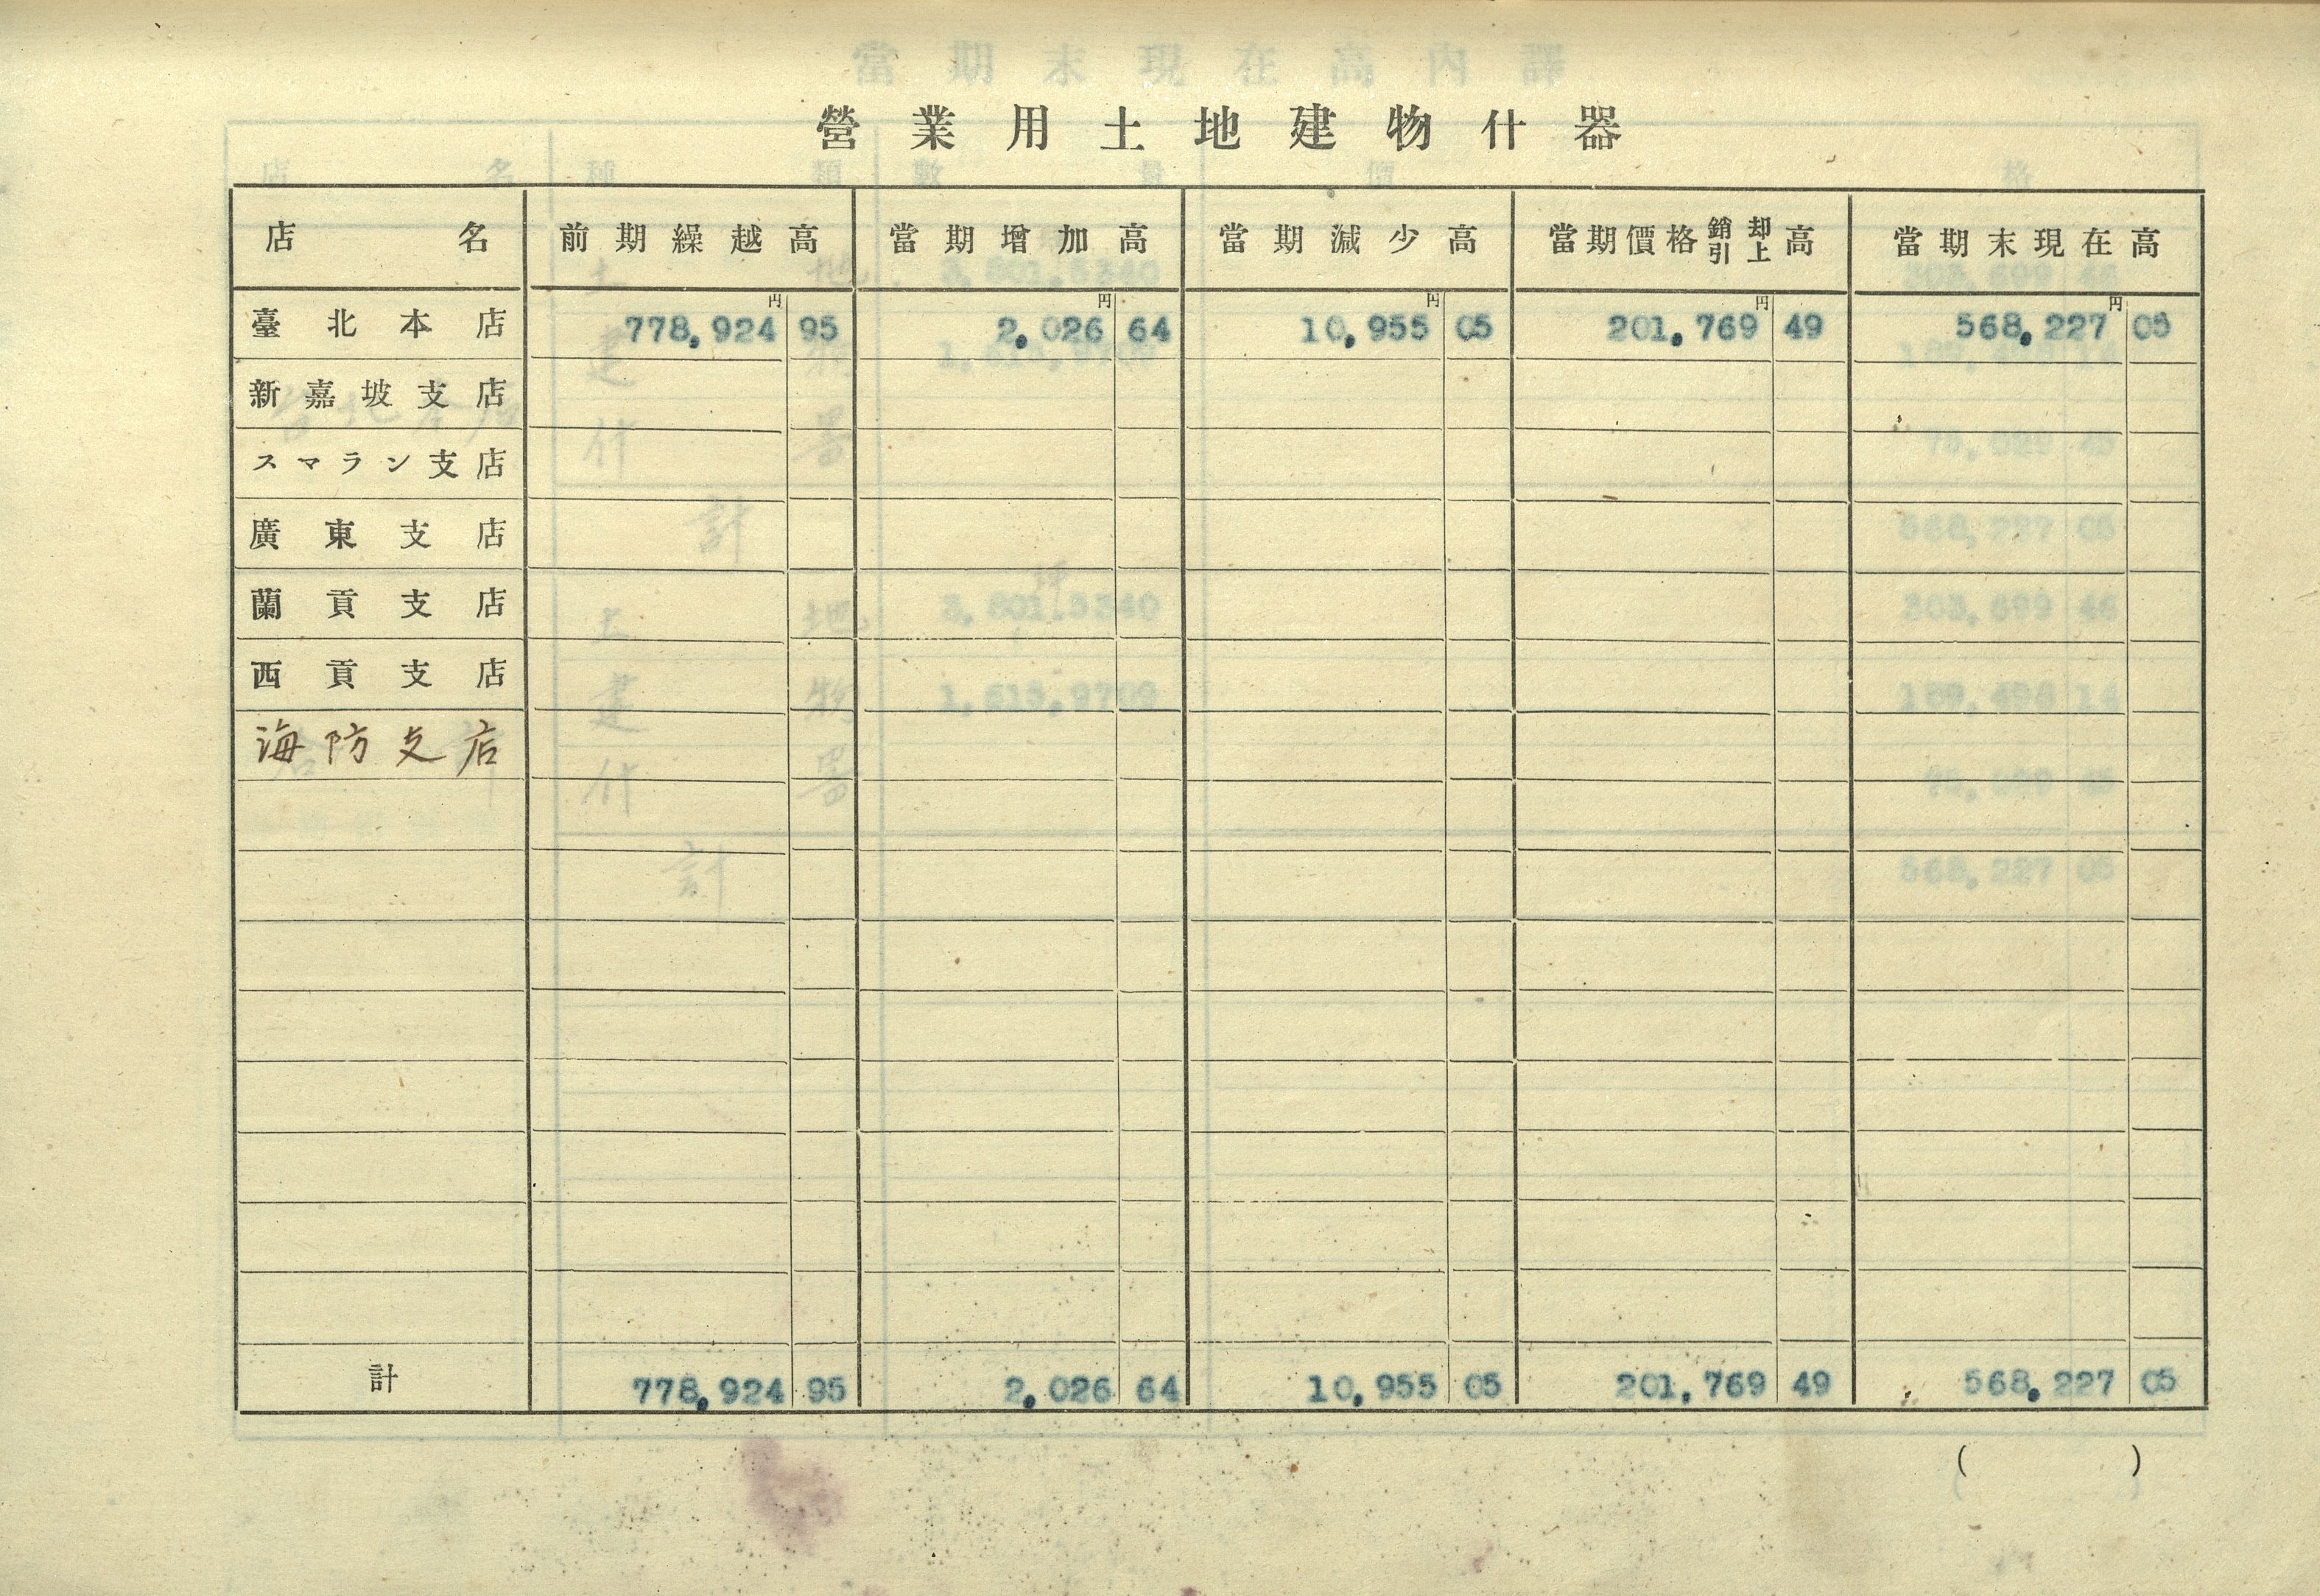 營業用土地建物什器
店名 前期繰越高 當期增加高 當期減少高 當期價格銷却引上高 當期末現在高
円 円 円 円 円
臺北本店 778,924 95 2,026 64 10,955 05 201,769 49 568,227 05
新嘉坡支店
スマラン支店
廣東支店
蘭貢支店
西貢支店
海防支店
計 778,924 95 2,026 64 10,955 05 201,769 49 568,227 05
( )